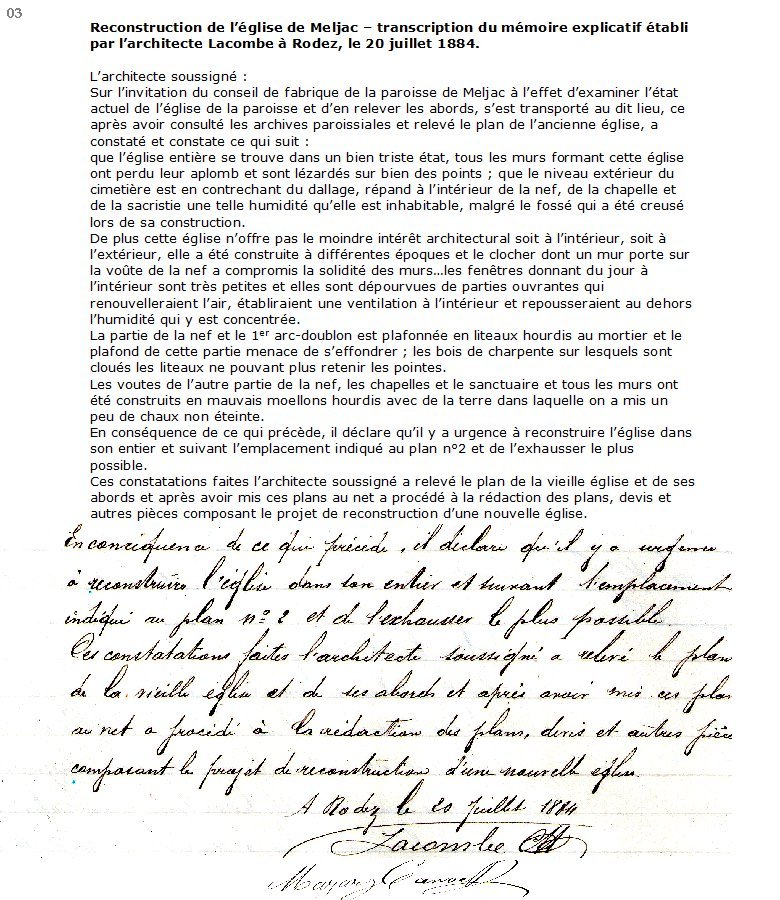 03
Reconstruction de l’église de Meljac – transcription du mémoire explicatif établi
par l’architecte Lacombe à Rodez, le 20 juillet 1884.
L’architecte soussigné :
Sur l’invitation du conseil de fabrique de la paroisse de Meljac à l’effet d’examiner l’état
actuel de l’église de la paroisse et d’en relever les abords, s’est transporté au dit lieu, ce
après avoir consulté les archives paroissiales et relevé le plan de l’ancienne église, a
constaté et constate ce qui suit :
que l’église entière se trouve dans un bien triste état, tous les murs formant cette église
ont perdu leur aplomb et sont lézardés sur bien des points ; que le niveau extérieur du
cimetière est en contrechant du dallage, répand à l’intérieur de la nef, de la chapelle et
de la sacristie une telle humidité qu’elle est inhabitable, malgré le fossé qui a été creusé
lors de sa construction.
De plus cette église n’offre pas le moindre intérêt architectural soit à l’intérieur, soit à
l’extérieur, elle a été construite à différentes époques et le clocher dont un mur porte sur
la voûte de la nef a compromis la solidité des murs…les fenêtres donnant du jour à
l’intérieur sont très petites et elles sont dépourvues de parties ouvrantes qui
renouvelleraient l’air, établiraient une ventilation à l’intérieur et repousseraient au dehors
l’humidité qui y est concentrée.
La partie de la nef et le 1er arc-doublon est plafonnée en liteaux hourdis au mortier et le
plafond de cette partie menace de s’effondrer ; les bois de charpente sur lesquels sont
cloués les liteaux ne pouvant plus retenir les pointes.
Les voutes de l’autre partie de la nef, les chapelles et le sanctuaire et tous les murs ont
été construits en mauvais moellons hourdis avec de la terre dans laquelle on a mis un
peu de chaux non éteinte.
En conséquence de ce qui précède, il déclare qu’il y a urgence à reconstruire l’église dans
son entier et suivant l’emplacement indiqué au plan n°2 et de l’exhausser le plus
possible.
Ces constatations faites l’architecte soussigné a relevé le plan de la vieille église et de ses
abords et après avoir mis ces plans au net a procédé à la rédaction des plans, devis et
autres pièces composant le projet de reconstruction d’une nouvelle église.
En conséquence de ce qui précède, il déclare qu'il y a urgence
à reconstruire l'église dans son entier et suivant l'emplacement
indiqué au plan n° 2 et de l'exhausser le plus possible
Ces constatations faites l'architecte soussigné a relevé le plan
de la vieille église et de ses abords et après avoir mis ces plans
au net a procédé à la rédaction des plans, devis et autres pièces
composant le projet de reconstruction d'une nouvelle église.
A Rodez le 20 juillet 1884
Lacombe